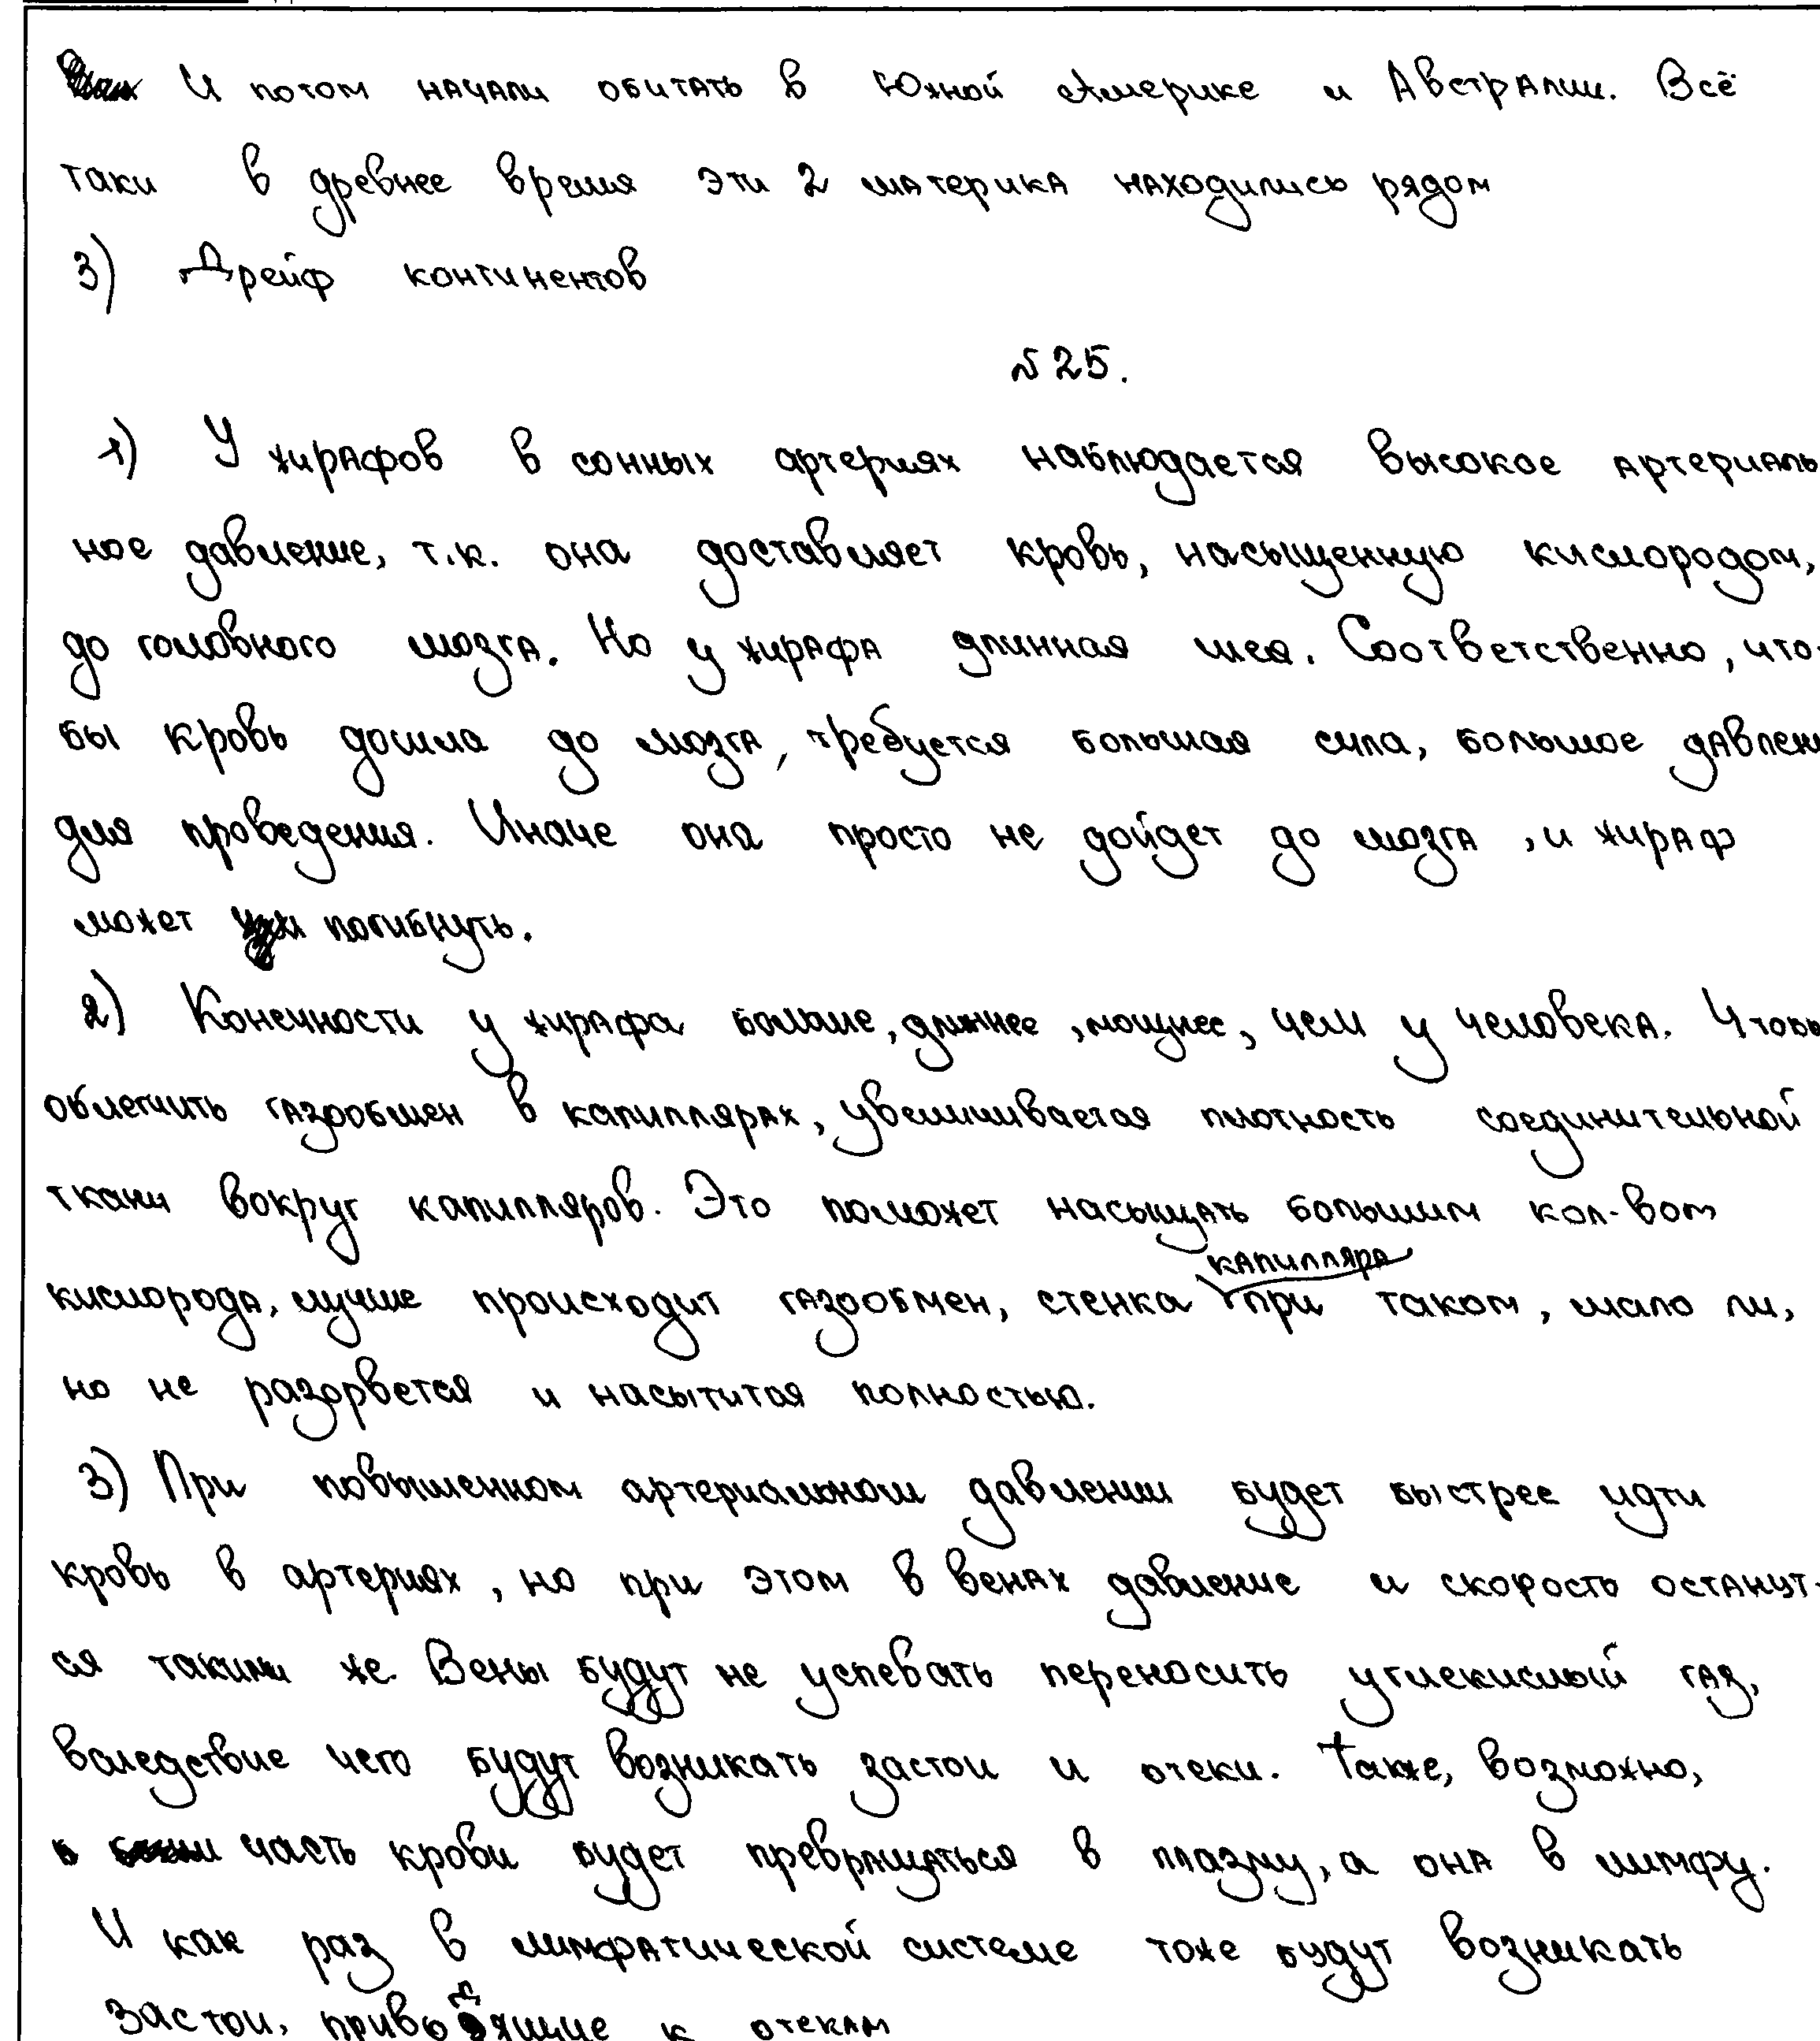 И потом начали обитать в Южной Америке и Австралии. Всё
таки в древнее время эти 2 материка находились рядом
3) Дрейф континентов
№ 25.
1) У жирафов в сонных артериях наблюдается высокое артериаль
ное давление, т.к. она доставляет кровь, насыщенную кислородом,
до головного мозга. Но у жирафа длинная шея. Соответственно, что-
бы кровь дошла до мозга, требуется большая сила, большое давлени
для проведения. Иначе она просто не дойдет до мозга, и жираф
может погибнуть.
2) Конечности у жирафа больше, длиннее, мощнее, чем у человека. Чтобы
облегчить газообмен в капиллярах, увеличивается плотность соединительной
ткани вокруг капилляров. Это поможет насыщать большим кол-вом
капилляра
кислорода, лучше происходит газообмен, стенка при таком, мало ли,
но не разорвется и насытится полностью.
3) При повышенном артериальном давлении будет быстрее идти
кровь в артериях, но при этом в венах давление и скорость останут-
ся такими же. Вены будут не успевать переносить углекислый газ,
вследствие чего будут возникать застои и отеки. Также, возможно,
часть крови будет превращаться в плазму, а она в лимфу.
И как раз в лимфатической системе тоже будут возникать
застои, приводящие к отекам